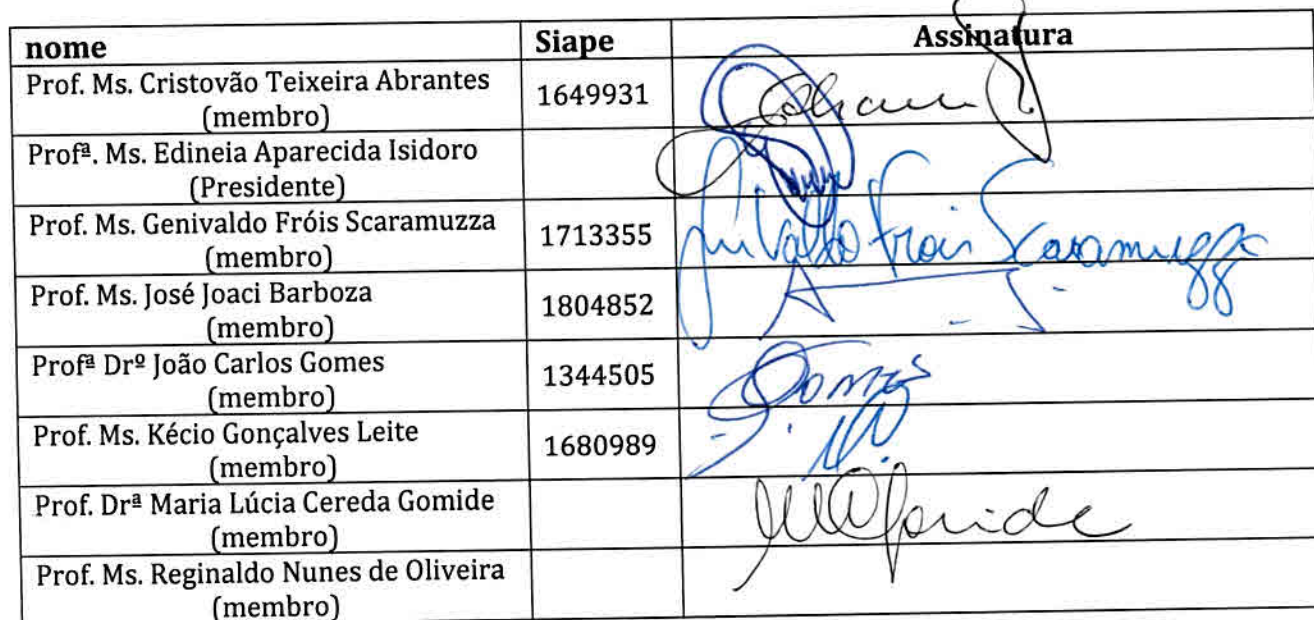 nome Siape Assinatura
Prof. Ms. Cristovão Teixeira Abrantes
(membro) 1649931
Profª. Ms. Edineia Aparecida Isidoro
(Presidente)
Prof. Ms. Genivaldo Fróis Scaramuzza
(membro) 1713355 Genivaldo Frois Scaramuzza
Prof. Ms. José Joaci Barboza
(membro) 1804852
Profª Drº João Carlos Gomes
(membro) 1344505 Gomes
Prof. Ms. Kécio Gonçalves Leite
(membro) 1680989
Prof. Drª Maria Lúcia Cereda Gomide
(membro) Gomide
Prof. Ms. Reginaldo Nunes de Oliveira
(membro)